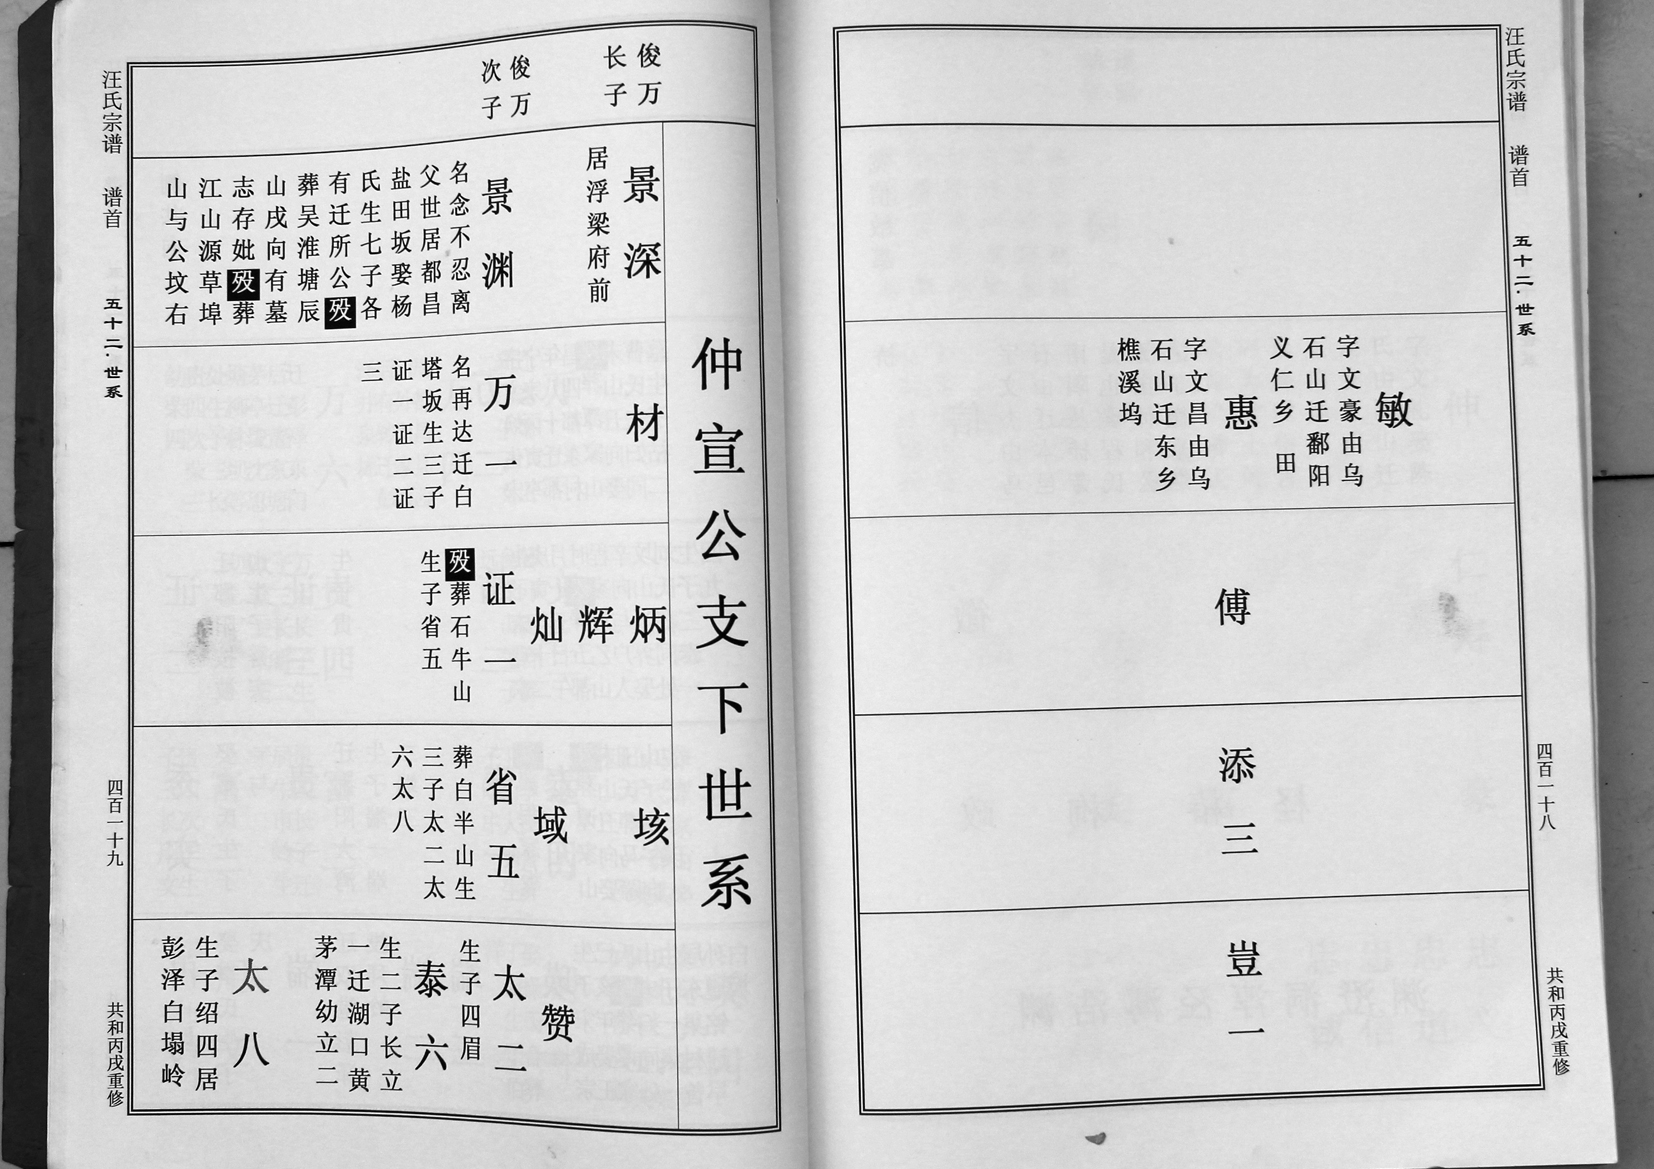 汪氏宗谱
谱首
五十二·世系
四百一十八
共和丙戌重修
敏
字文豪由乌
石山迁鄱阳
义仁乡田
惠
字文昌由乌
石山迁东乡
樵溪坞
傅
添三
豈一
仲宣公支下世系
俊万
长子
俊万
次子
景深
居浮梁府前
景渊
名念不忍离
父世居都昌
盐田坂娶杨
氏生七子各
有迁所公殁
葬吴淮塘辰
山戌向有墓
志存妣殁葬
江山源草埠
山与公坟右
材
万一
名再达迁白
塔坂生三子
证一证二证
三
炳
辉
灿
证一
殁葬石牛山
生子省五
垓
域
省五
葬白半山生
三子太二太
六太八
赞
太二
生子四眉
泰六
生二子长立
一迁湖口黄
茅潭幼立二
太八
生子绍四居
彭泽白塌岭
汪氏宗谱
谱首
五十二·世系
四百一十九
共和丙戌重修